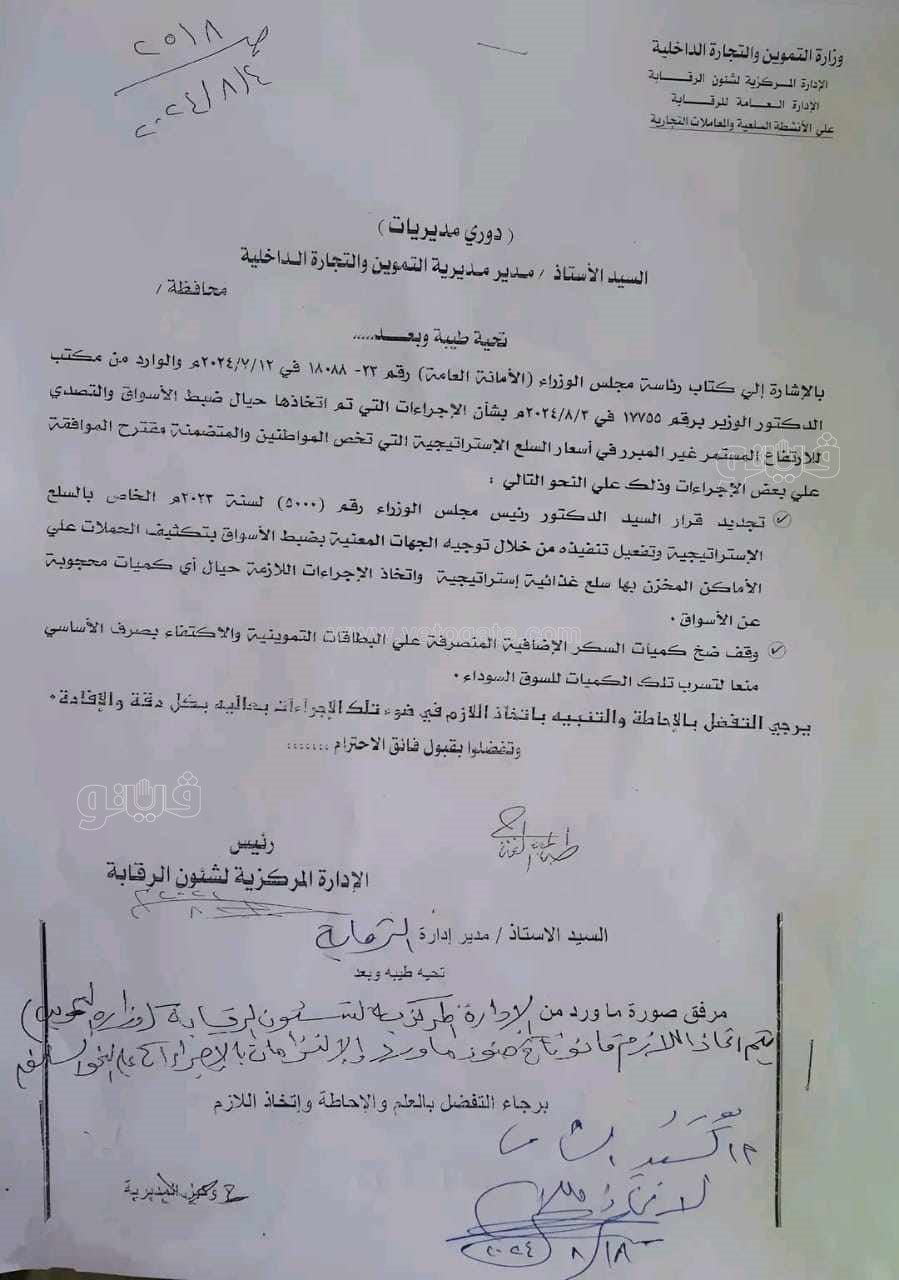 وزارة التموين والتجارة الداخلية
الإدارة المركزية لشئون الرقابة
الإدارة العامة للرقابة
علي الأنشطة السلعية والمعاملات التجارية
ص ٢٥١٨
٢٠٢٤/٨/٤
( دوري مديريات )
السيد الأستاذ / مدير مديرية التموين والتجارة الداخلية
محافظة /
تحية طيبة وبعد.....
بالإشارة إلي كتاب رئاسة مجلس الوزراء (الأمانة العامة) رقم ٢٣- ١٨٠٨٨ في ٢٠٢٤/٧/١٢م والوارد من مكتب
الدكتور الوزير برقم ١٧٧٥٥ في ٢٠٢٤/٨/٢م بشأن الإجراءات التي تم اتخاذها حيال ضبط الأسواق والتصدي
للارتفاع المستمر غير المبرر في أسعار السلع الإستراتيجية التي تخص المواطنين والمتضمنة مقترح الموافقة
علي بعض الإجراءات وذلك علي النحو التالي :
تجديد قرار السيد الدكتور رئيس مجلس الوزراء رقم (٥٠٠٠) لسنة ٢٠٢٣م الخاص بالسلع
الإستراتيجية وتفعيل تنفيذه من خلال توجيه الجهات المعنية بضبط الأسواق بتكثيف الحملات علي
الأماكن المخزن بها سلع غذائية إستراتيجية واتخاذ الإجراءات اللازمة حيال أي كميات محجوبة
عن الأسواق .
وقف ضخ كميات السكر الإضافية المنصرفة علي البطاقات التموينية والاكتفاء بصرف الأساسي
منعا لتسرب تلك الكميات للسوق السوداء .
يرجي التفضل بالإحاطة والتنبيه باتخاذ اللازم في ضوء تلك الإجراءات بعاليه بكل دقة والإفادة .
وتفضلوا بقبول فائق الاحترام .......
رئيس
الإدارة المركزية لشئون الرقابة
السيد الاستاذ / مدير إدارة الرقابة
تحيه طيبه وبعد
مرفق صورة ماورد من الإدارة المركزية لشئون الرقابة (وزارة التموين)
يتم اتخاذ اللازم قانونا في ضوء ماورد والإلتزام بالإجراءات علي النحو
برجاء التفضل بالعلم والإحاطة وإتخاذ اللازم
وكيل المديرية
٢٠٢٤/٨/١٨
فيتو
www.vetogate.com
فيتو